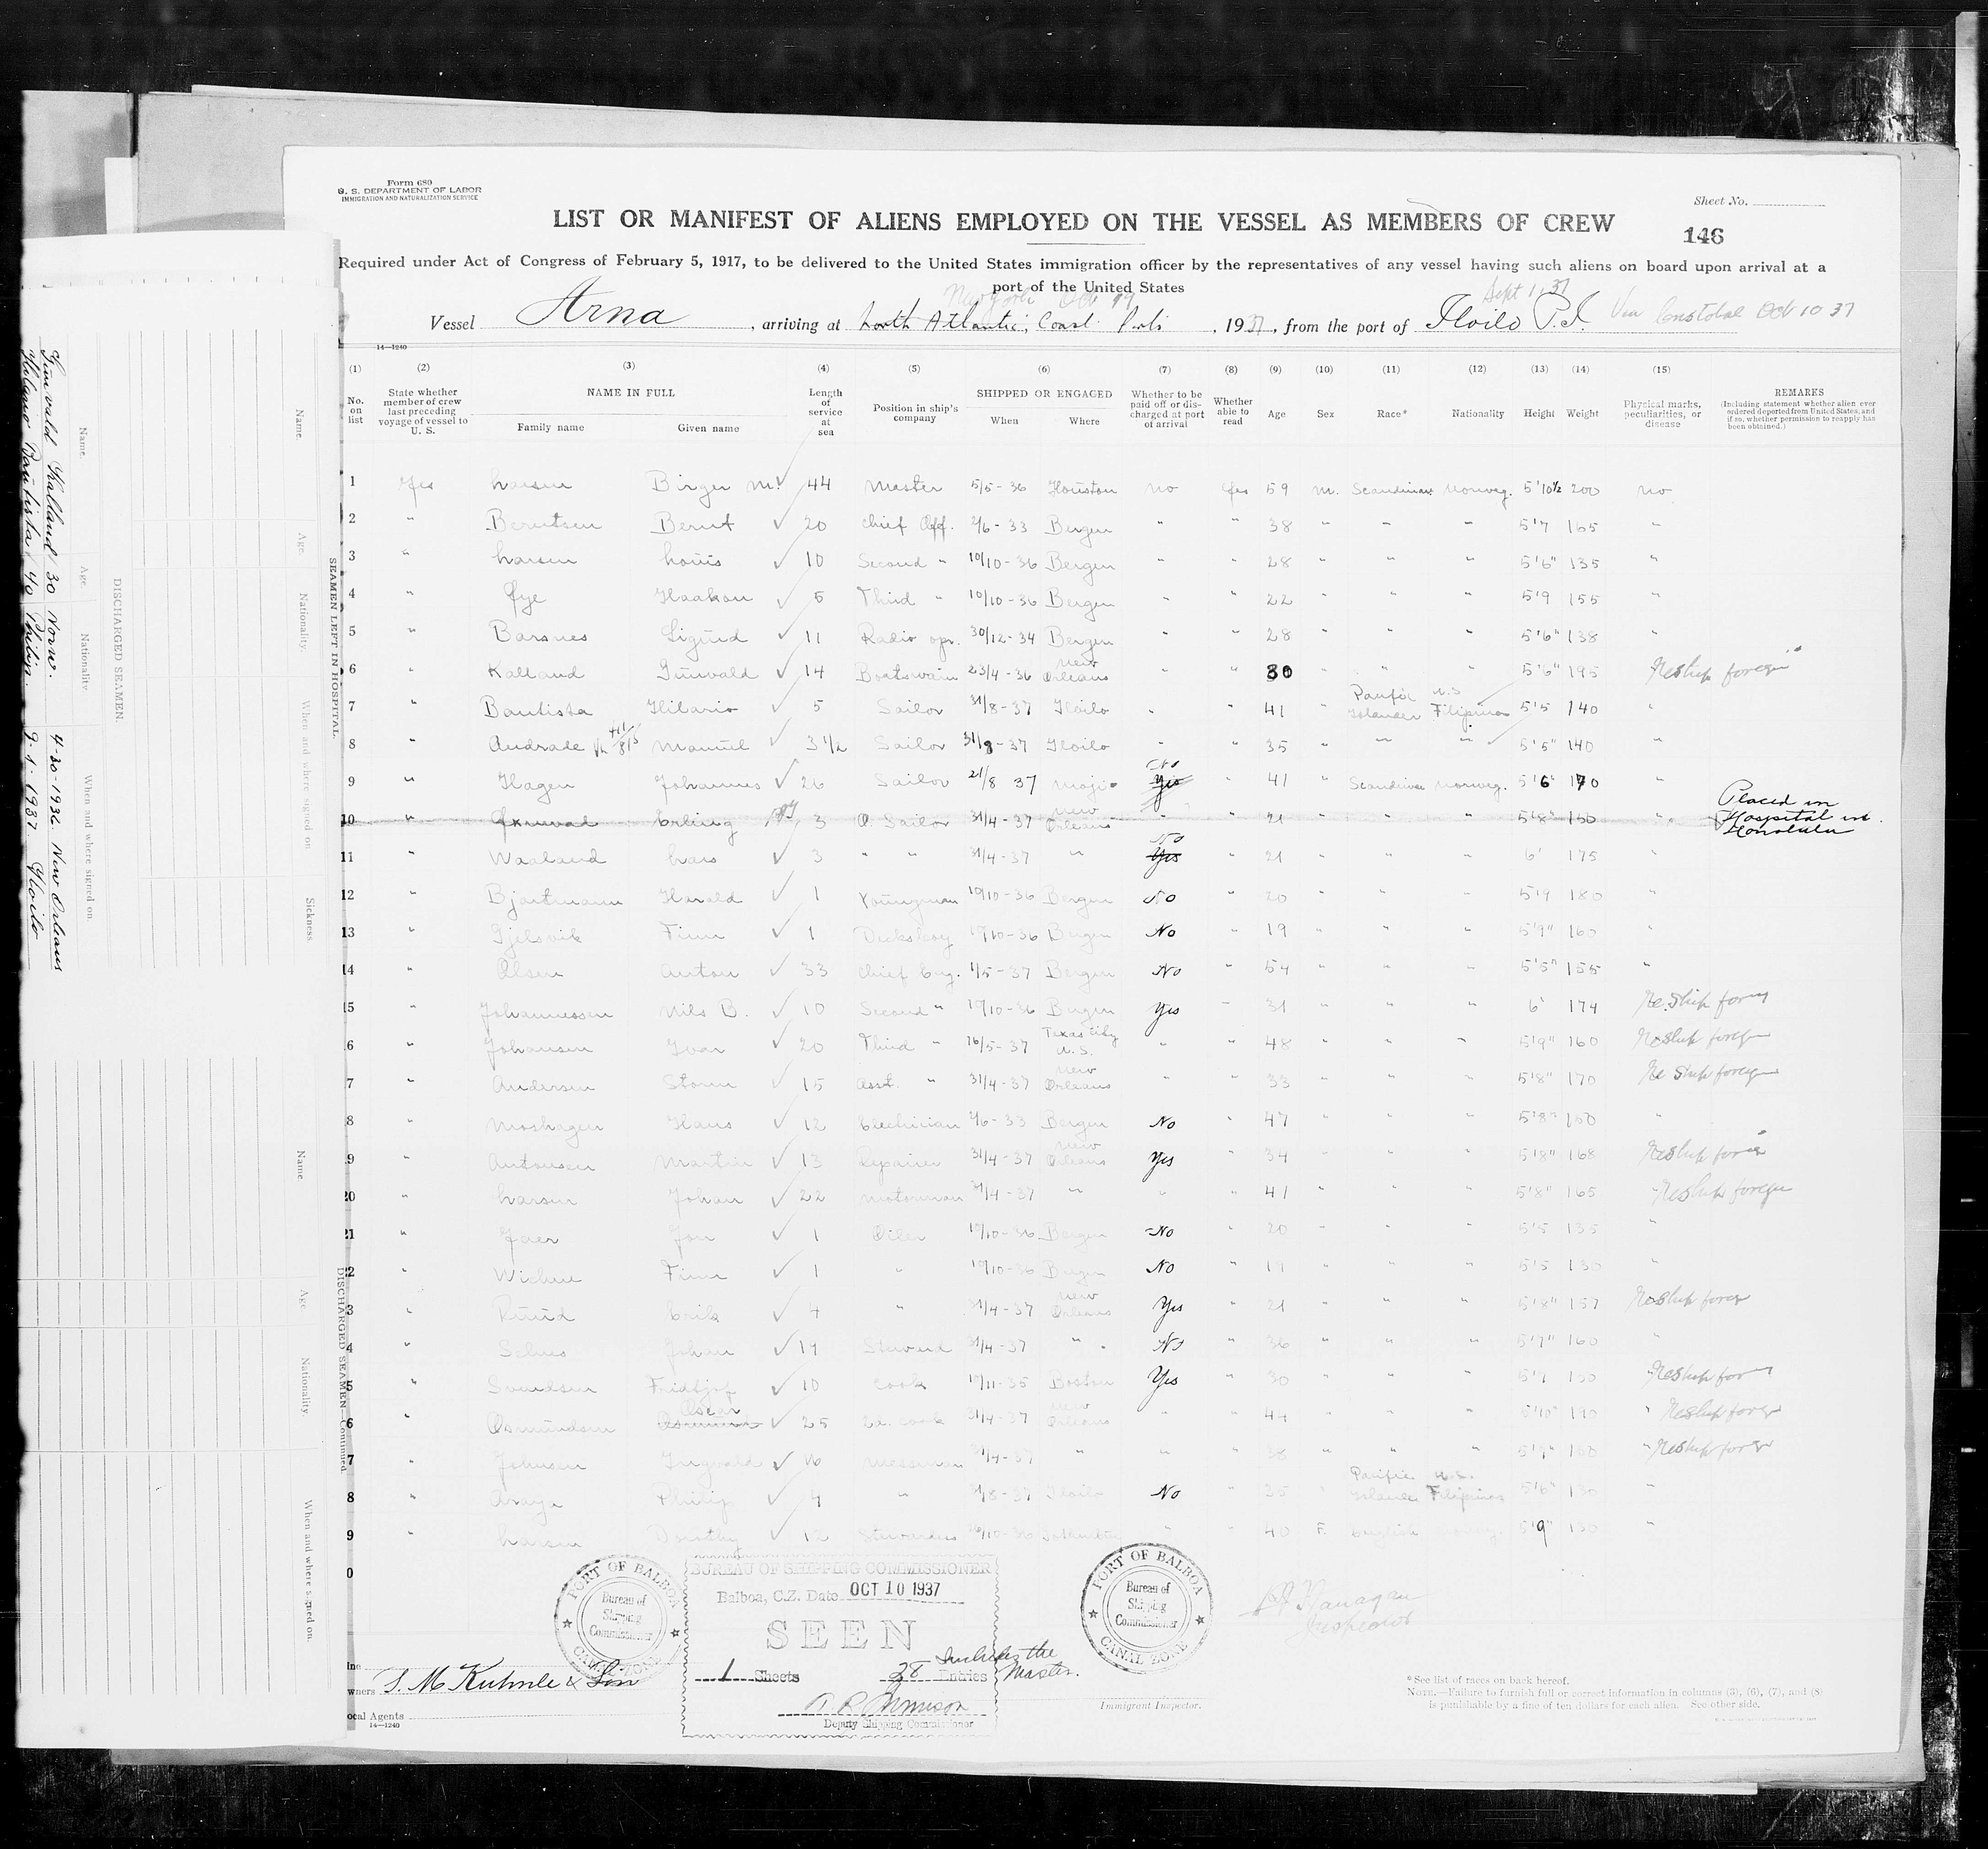 Form 680
U. S. DEPARTMENT OF LABOR
IMMIGRATION AND NATURALIZATION SERVICE
Sheet No.
LIST OR MANIFEST OF ALIENS EMPLOYED ON THE VESSEL AS MEMBERS OF CREW
146
Required under Act of Congress of February 5, 1917, to be delivered to the United States immigration officer by the representatives of any vessel having such aliens on board upon arrival at a
port of the United States
New York Oct 19
Sept 1, 37
Vessel Arna, arriving at North Atlantic, Coast Ports, 1937, from the port of Iloilo P.I. Via Cristobal Oct 10 37
14—1240
(1) (2) (3) (4) (5) (6) (7) (8) (9) (10) (11) (12) (13) (14) (15)
No. on list
State whether member of crew last preceding voyage of vessel to U. S.
NAME IN FULL
Family name Given name
Length of service at sea
Position in ship's company
SHIPPED OR ENGAGED
When Where
Whether to be paid off or discharged at port of arrival
Whether able to read
Age Sex Race* Nationality Height Weight
Physical marks, peculiarities, or disease
REMARKS
(Including statement whether alien ever ordered deported from United States, and if so, whether permission to reapply has been obtained.)
1 Yes Larsen Birger M. 44 Master 5/5-36 Houston no Yes 59 m. Scandinav. Norweg. 5'10½ 200 no
2 " Berntsen Bernt 20 Chief Off. 2/6-33 Bergen " " 38 " " " 5'7 165 "
3 " Larsen Louis 10 Second " 10/10-36 Bergen " " 28 " " " 5'6" 135 "
4 " Øye Haakon 5 Third " 10/10-36 Bergen " " 22 " " " 5'9 155 "
5 " Barsnes Sigurd 11 Radio opr. 30/12-34 Bergen " " 28 " " " 5'6" 138 "
6 " Kalland Gunvald 14 Boatswain 23/4-36 New Orleans " " 30 " " " 5'6" 195 Reship foreign
7 " Bautista Hilario 5 Sailor 31/8-37 Iloilo " " 41 " Pacific Islander U.S. Filipino 5'5 140 "
8 " Andrade Manuel 3½ Sailor 31/8-37 Iloilo " " 35 " " " 5'5" 140 "
9 " Hagen Johannes 26 Sailor 21/8 37 Moji No Yes " 41 " Scandinav Norweg. 5'6" 170 "
10 " Erling 3 O. Sailor 31/4-37 New Orleans " " 21 " " " 5'8" 150 " Placed in Hospital in Honolulu
11 " Waaland Lars 3 " " 31/4-37 " No Yes " 21 " " " 6' 175 "
12 " Bjortmann Harald 1 Youngman 19/10-36 Bergen No " 20 " " " 5'9 180 "
13 " Gjelsvik Finn 1 Decksboy 19/10-36 Bergen No " 19 " " " 5'9" 160 "
14 " Olsen Anton 33 Chief Eng. 1/5-37 Bergen No " 54 " " " 5'5" 155 "
15 " Johannessen Nils B. 10 Second " 19/10-36 Bergen Yes " 31 " " " 6' 174 Re.Ship foreign
6 " Johansen Ivar 20 Third " 16/5-37 Texas City U.S. " " 48 " " " 5'9" 160 Reship foreign
7 " Andersen Storm 15 Asst. " 31/4-37 New Orleans " " 33 " " " 5'8" 170 Re Ship foreign
8 " Moshagen Hans 12 Electrician 2/6-33 Bergen No " 47 " " " 5'8" 160 "
9 " Antonsen Martin 13 Repairer 31/4-37 New Orleans Yes " 34 " " " 5'8" 168 Reship foreign
20 " Larsen Johan 22 Motorman 31/4-37 " " " 41 " " " 5'8" 165 Reship foreign
21 " Jon 1 Oiler 19/10-36 Bergen No " 20 " " " 5'5 135 "
22 " Finn 1 " 19/10-36 Bergen No " 19 " " " 5'5 130 "
3 " Ruud Erik 4 " 31/4-37 New Orleans Yes " 21 " " " 5'8" 157 Reship foreign
4 " Selnes Johan 19 Steward 31/4-37 " No " 36 " " " 5'7" 160 "
5 " Svendsen Fridtjof 10 Cook 19/11-35 Boston Yes " 30 " " " 5'7 150 Reship foreign
6 " Osmundsen Oscar 25 2n. Cook 31/4-37 New Orleans " " 44 " " " 5'10" 190 " Reship foreign
7 " Johnsen Ingvald 16 Messman 31/4-37 " " " 38 " " " 5'9" 160 " Reship foreign
8 " Araya Philip 4 " 31/8-37 Iloilo No " 25 " Pacific Islander U.S. Filipino 5'6" 130 "
9 " Larsen Dorothy 12 Stewardess 26/10-36 " " 40 F. English Norweg. 5'9" 130 "
0
PORT OF BALBOA
Bureau of Shipping Commissioner
CANAL ZONE
BUREAU OF SHIPPING COMMISSIONER
Balboa, C.Z. Date OCT 10 1937
SEEN
1 Sheets 28 Entries Includes the Master.
Deputy Shipping Commissioner
PORT OF BALBOA
Bureau of Shipping Commissioner
CANAL ZONE
Flanagan
Inspector
Immigrant Inspector.
ine
wners S. M. Kuhnle & Son
ocal Agents
14—1240
*See list of races on back hereof.
NOTE.—Failure to furnish full or correct information in columns (3), (6), (7), and (8) is punishable by a fine of ten dollars for each alien. See other side.
SEAMEN LEFT IN HOSPITAL
Name. Age. Nationality. When and where signed on. Sickness.
DISCHARGED SEAMEN.
Name. Age. Nationality. When and where signed on.
Gunvald Kalland 30 Norw. 4-30-1936 New Orleans
Hilario Bautista 40 Philip. 9-1-1937 Iloilo
DISCHARGED SEAMEN—Continued
Name. Age. Nationality. When and where signed on.